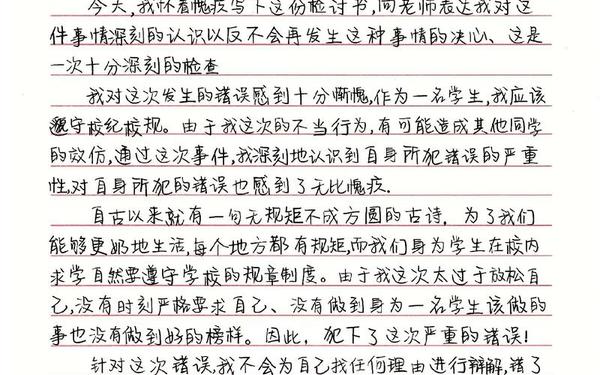 今天,我怀着愧疚写下这份检讨书,向老师表达我对这
件事情深刻的认识以反不会再发生这种事情的决心、这是
一次十分深刻的检查
我对这次发生的错误感到十分惭愧,作为一名学生,我应该
遵守校纪校规。由于我这次的不当行为,有可能造成其他同学
的效仿,通过这次事件,我深刻地认识到自身所犯错误的严重
性,对自身所犯的错误也感到了无比愧疚.
自古以来就有一句无规矩不成方圆的古诗,为了我们
能够更好地生活,每个地方都有规矩,而我们身为学生在校内
求学自然要遵守学校的规章制度。由于我这次太过于放松自
己,没有时刻严格要求自己、没有做到身为一名学生该做的
事也没有做到好的榜样。因此,犯下了这次严重的错误!
针对这次错误,我不会为自己找任何理由进行辩解,错了